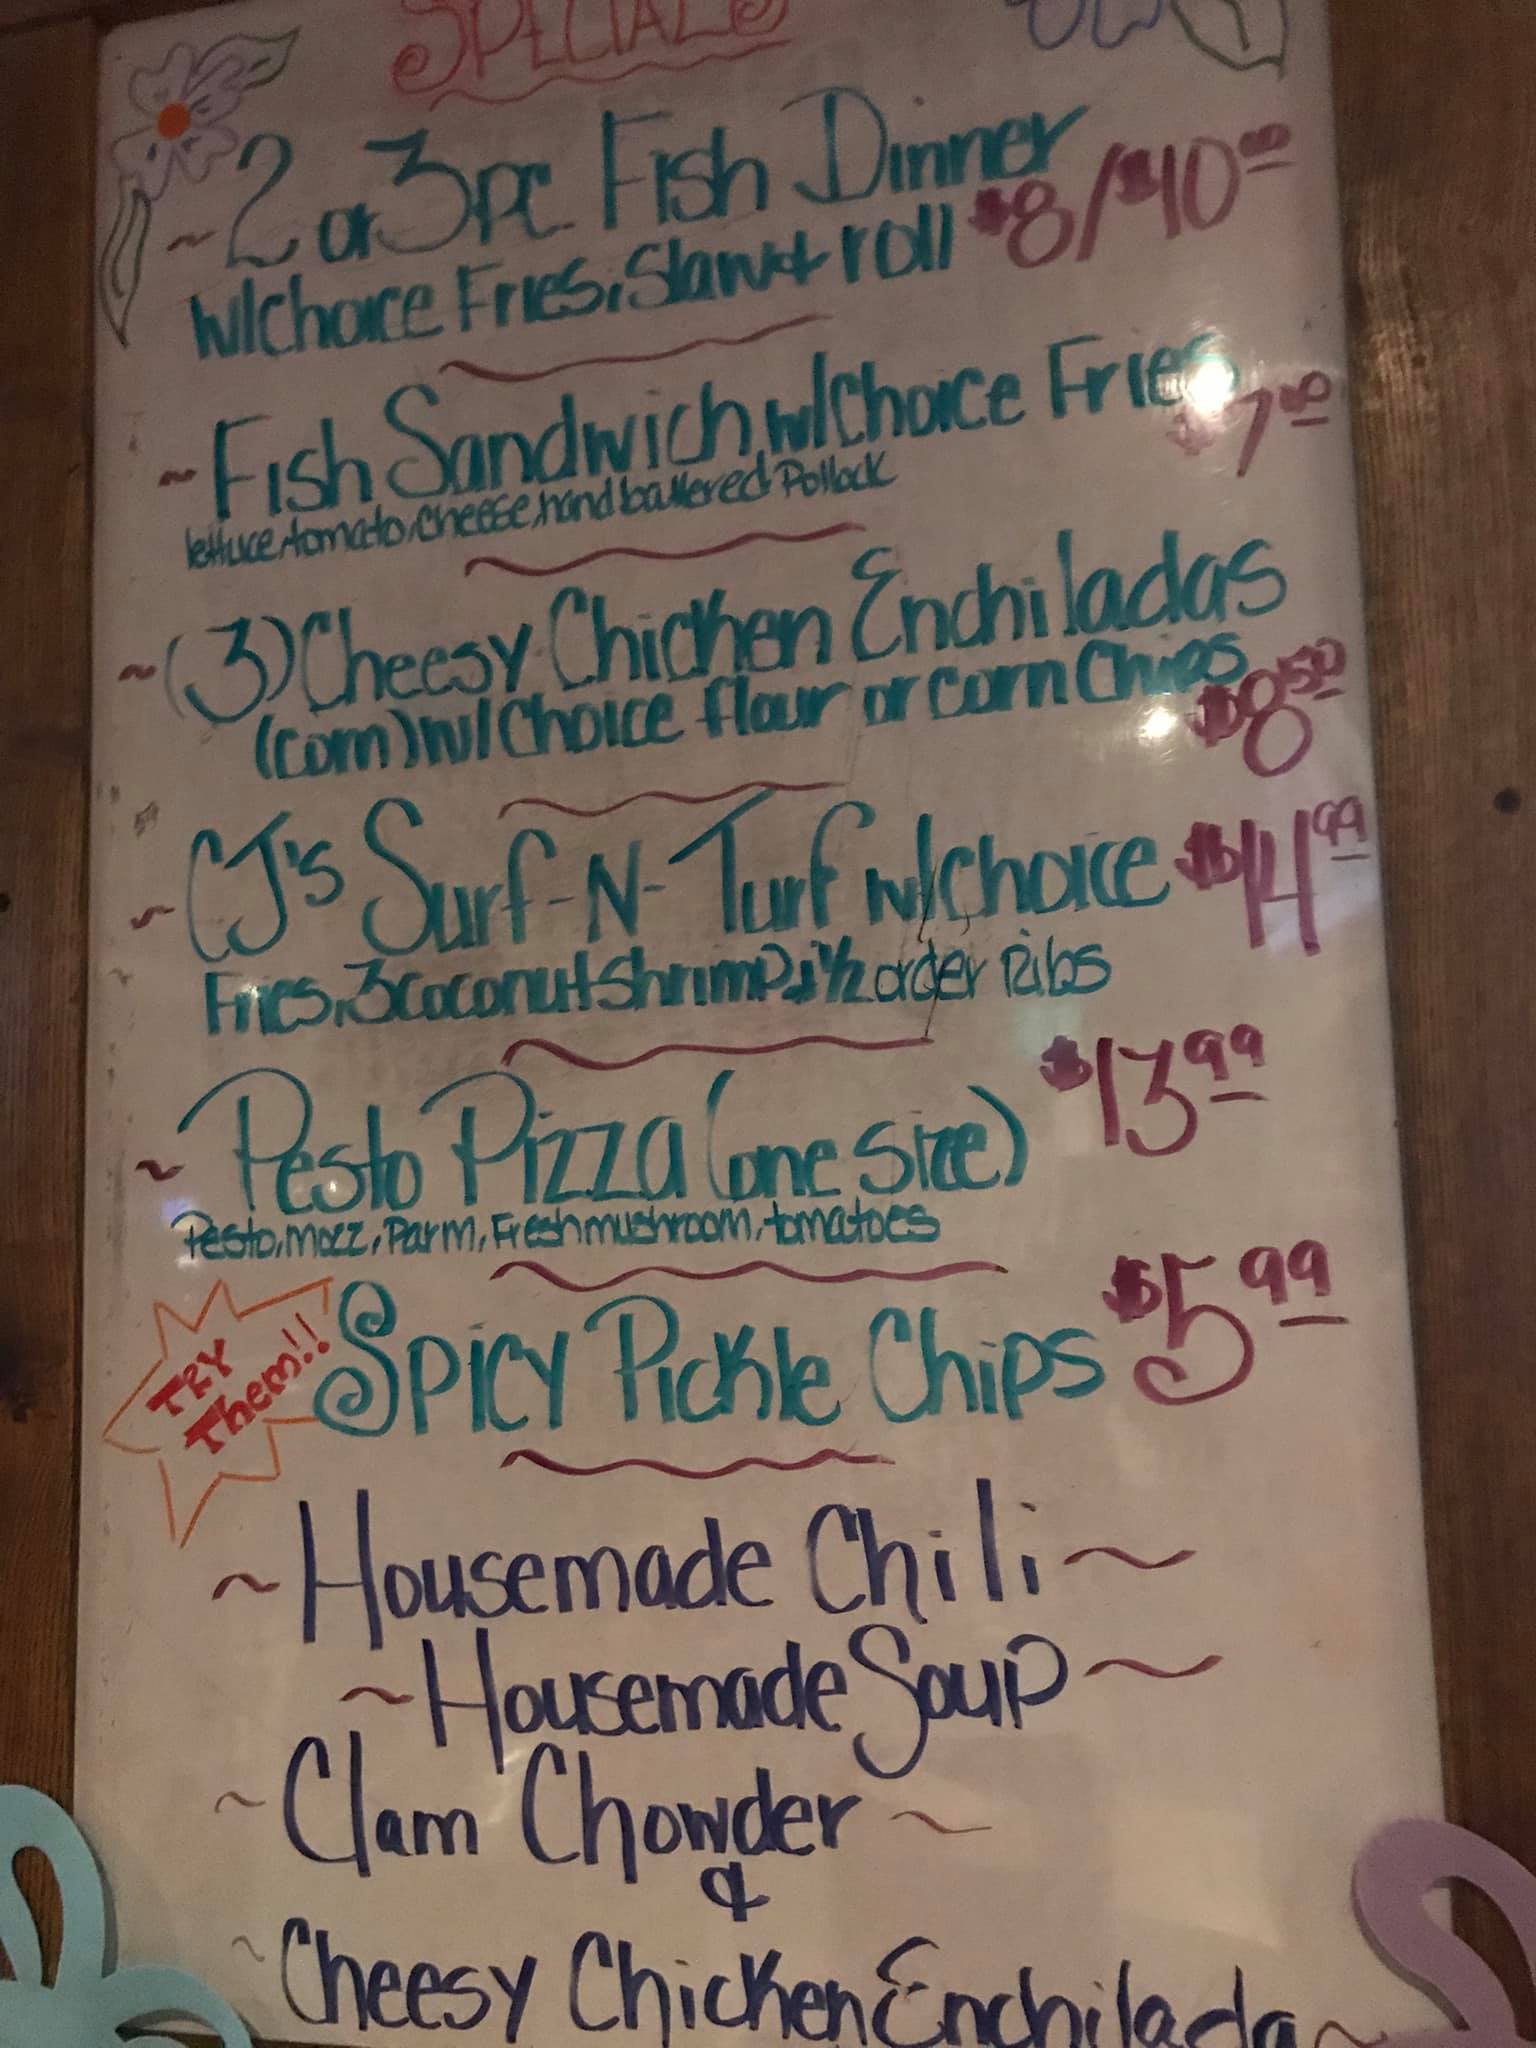 SPECIALS
~ 2 or 3pc Fish Dinner
w/Choice Fries, Slaw & roll $8/$10.00
~ Fish Sandwich w/Choice Fries $7.00
lettuce, tomato, cheese, hand battered Pollock
~ (3) Cheesy Chicken Enchiladas
(corn) w/Choice flour or corn Chips $8.50
~ CJ's Surf-N-Turf w/choice $14.99
Fries, 3 coconut shrimp, & 1/2 order Ribs
~ Pesto Pizza (one size) $13.99
Pesto, mozz, Parm, Fresh mushroom, tomatoes
TRY
Them!!
Spicy Pickle Chips $5.99
~ Housemade Chili ~
~ Housemade Soup ~
~ Clam Chowder ~
&
~ Cheesy Chicken Enchilada ~